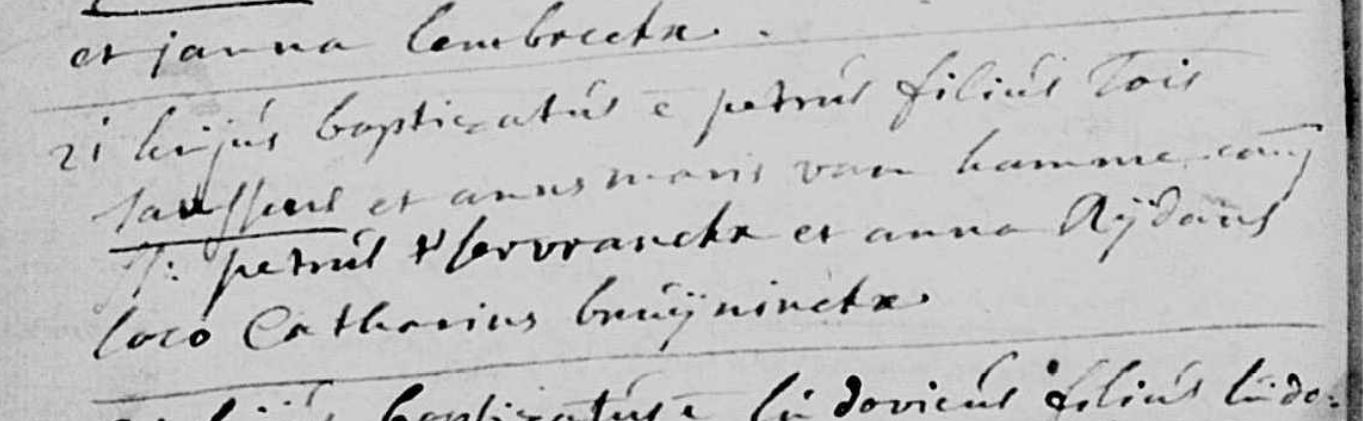 et janna lembrectx.
21 hujus baptizatus e petrus filius Jois
Janssens et anna maria van hamme conj
SS: petrus t'servranckx et anna Rÿdams
loco Catharina bruÿninckx
hujus baptizatus e Ludovicus filius Ludo: